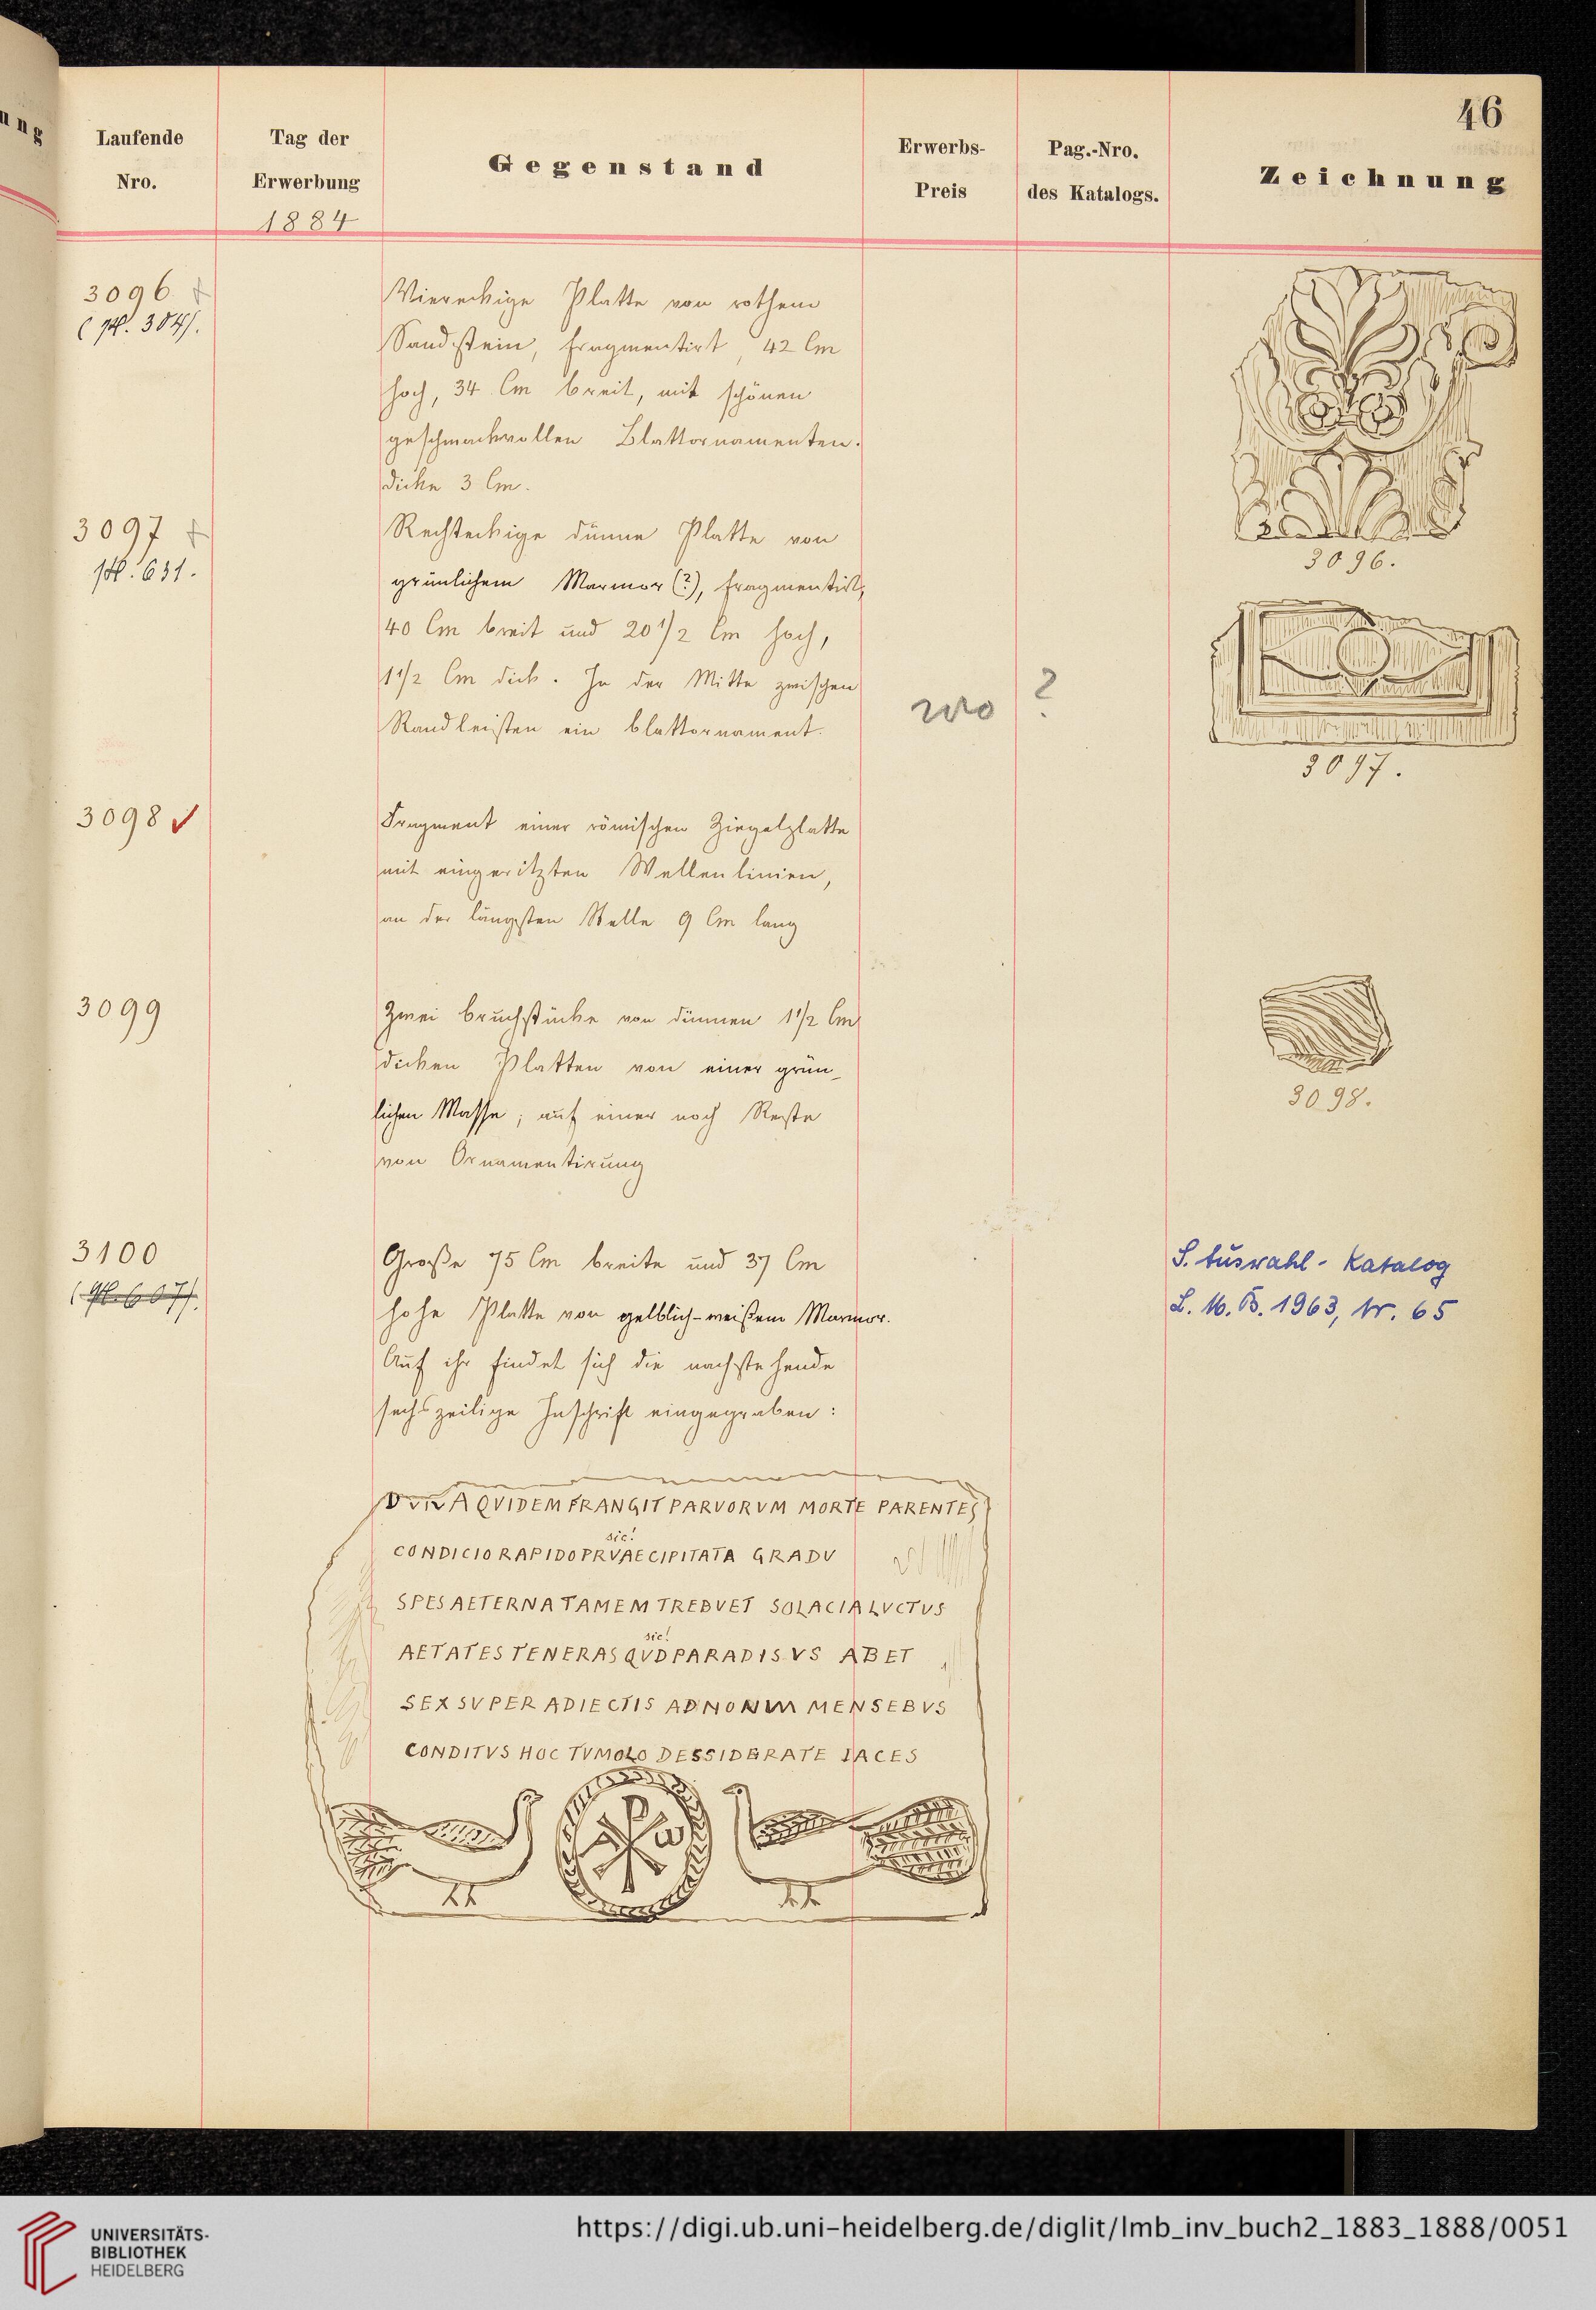 46
Laufende Nro.
Tag der Erwerbung
1884
Gegenstand
Erwerbs-Preis
Pag.-Nro. des Katalogs.
Zeichnung
3096
Viereckige Platte von rothem
Sandstein, fragmentirt, 42 Cm
hoch, 34 Cm breit, mit schönen
geschmackvollen Blattornamenten.
dicke 3 Cm.
3096.
3097
631.
Rechteckige dünne Platte von
grünlichem Marmor (?), fragmentirt,
40 Cm breit und 20 1/2 Cm hoch,
1 1/2 Cm dick. In der Mitte zwischen
Randleisten ein blattornament.
wo ?
3097.
3098 ✓
Fragment einer römischen Ziegelplatte
mit eingeritzten Wellenlinien,
an der längsten Stelle 9 Cm lang
3098.
3099
Zwei bruchstücke von dünnen 1 1/2 Cm
dicken Platten von einer grün-
lichen Masse; auf einer noch Reste
von Ornamentirung
3100
Große 75 Cm breite und 37 Cm
hohe Platte von gelblich-weißem Marmor.
Auf ihr findet sich die nachstehende
sechszeilige Inschrift eingegraben:
S. Auswahl-Katalog
L. M. B. 1963, Nr. 65
QVIDEM FRANGIT PARVORVM MORTE PARENTES
sic!
CONDICIO RAPIDO PRVAECIPITATA GRADV
SPES AETERNA TAMEM TREBVET SOLACIA LVCTVS
sic!
AETATES TENERAS QVD PARADISVS ABET
SEX SVPER ADIECTIS AD NONVM MENSEBVS
CONDITVS HOC TVMOLO DESSIDERATE IACES
ω
UNIVERSITÄTS-
BIBLIOTHEK
HEIDELBERG
https://digi.ub.uni-heidelberg.de/diglit/lmb_inv_buch2_1883_1888/0051